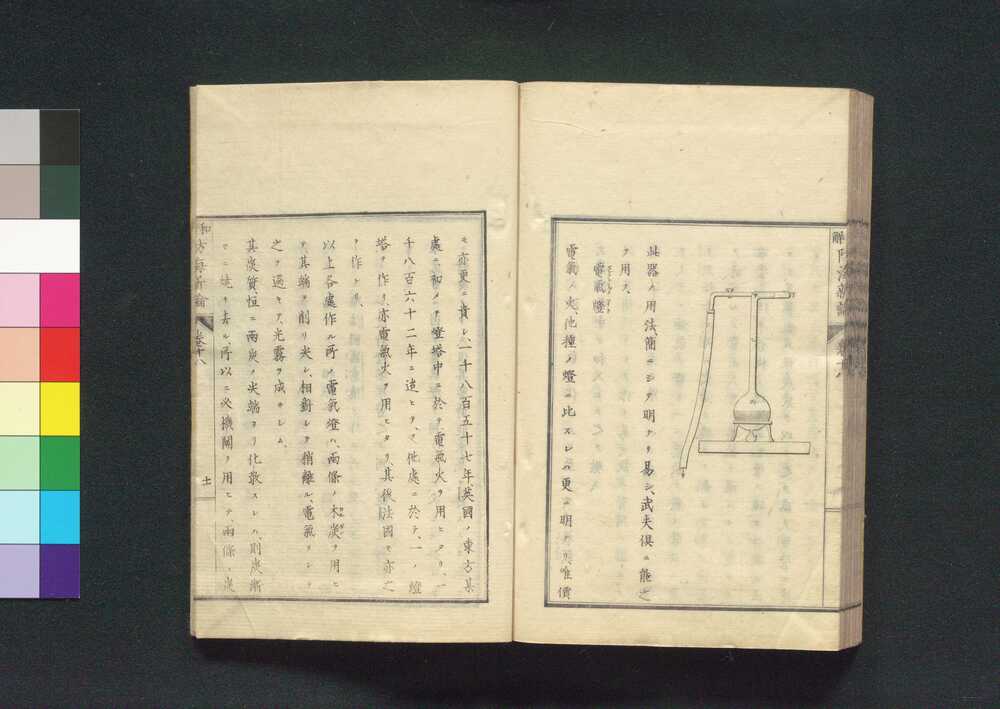 此器ノ用法、簡ニシテ明ナリ易シ、武夫俱ニ能之
ヲ用ス、
電氣燈
電氣ノ火、他種ノ燈ニ比スレハ更ニ明ナリ、唯價
モ亦更ニ貴シ、一千八百五十七年、英國ノ東方某
處ニ初メテ燈塔中ニ於テ電氣火ヲ用ヒタリ、一
千八百六十二年ニ迨ヒテ、又他處ニ於テ、一ノ燈
塔ヲ作リ、亦電氣火ヲ用ヒタリ、其後法國モ亦之
ヲ作レリ、
以上各處作ル所ノ電氣燈ハ、兩條ノ木炭ヲ用ヒ
テ其端ヲ削リ尖シ、相對シテ稍離ル、電氣ヲシテ
之ヲ過キテ、光霧ヲ成サシム、
其炭質恒ニ兩炭ノ尖端ヨリ化散スレハ、則炭漸
々ニ燒ケ去ル、所以ニ必機關ヲ用ヒテ、兩條ノ炭
卷十八